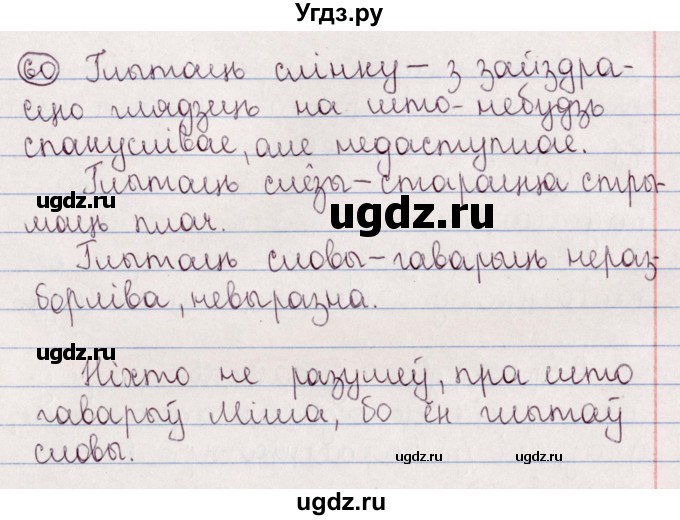 Угдз.ру
60 Глытаць слінку – з зайздра-
сцю глядзець на што-небудзь
спакуслівае, але недаступнае.
Глытаць слёзы – старацца стры-
ugdz.ru
ugdz.ru
маць плач.
Глытаць словы – гаварыць нераз-
борліва, невыразна.
ugdz.ru
Ніхто не разумеў, пра што
гаварыў Міша, бо ён глытаў
словы.
ugdz.ru
ugdz.ru
ugdz.ru